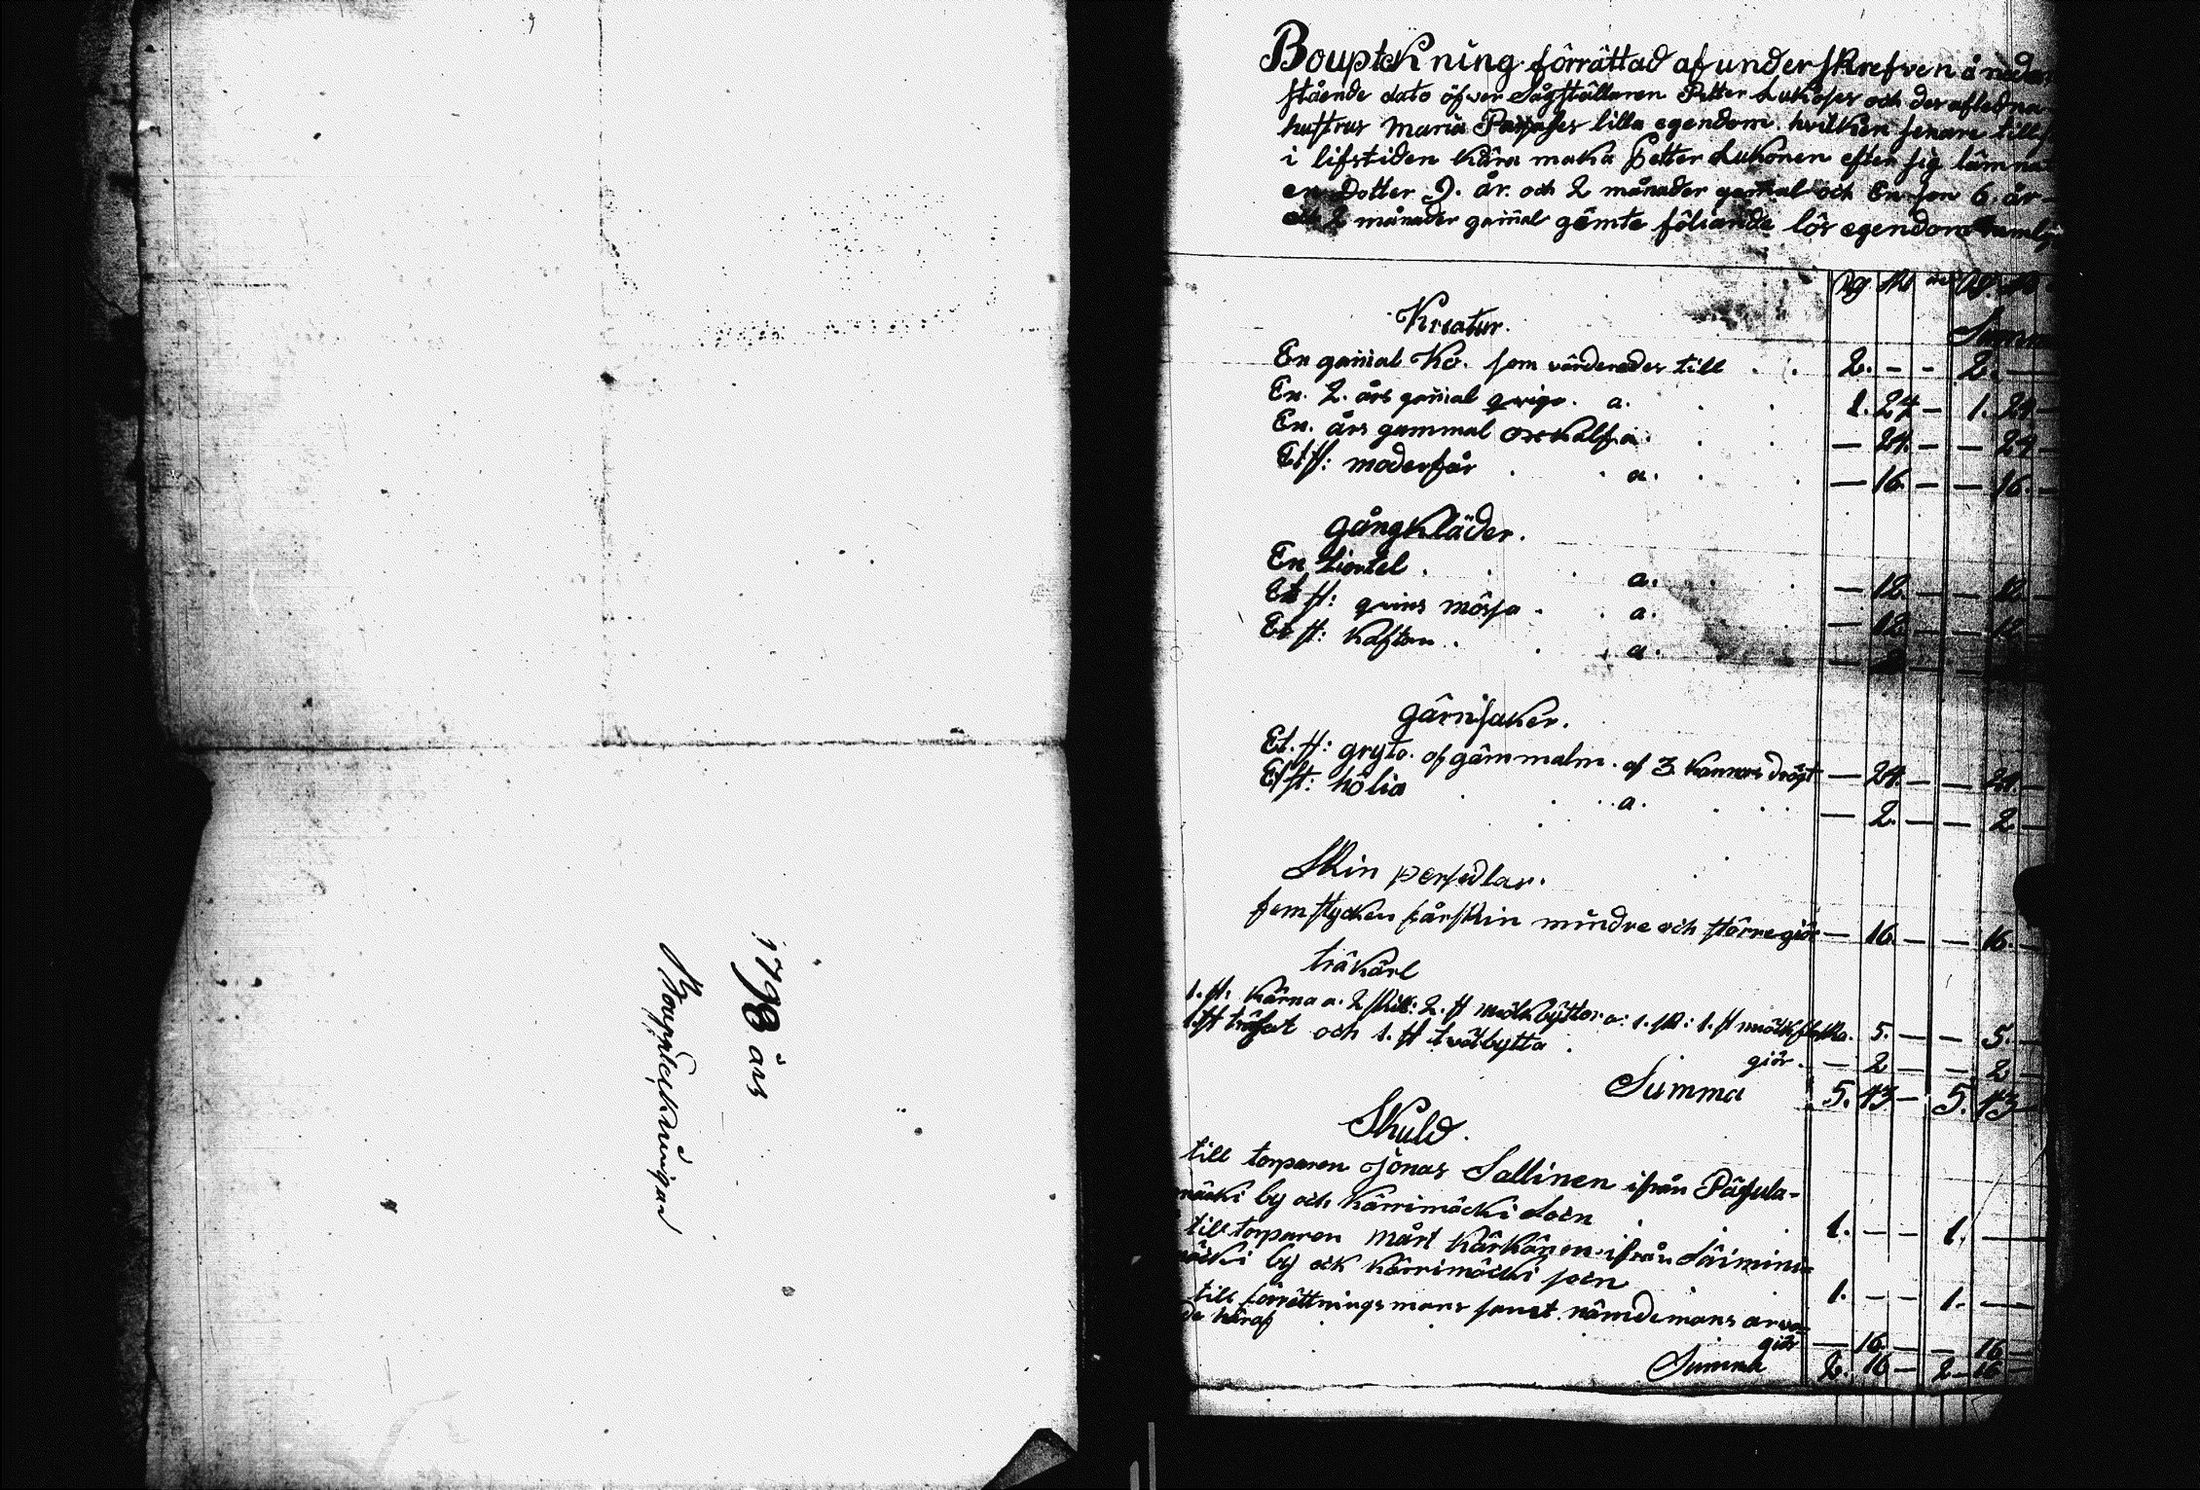 1798 års
Bouppteckningar
Boupteckning förrättad af underskrefven å neder
stående dato öfver Sågställaren Petter Lukoses och des afledna
hustrus Maria Passises lilla egendom, hvilken senare
i lifstiden kära maka Petter Lukonen efter sig lämnat
en Dotter 9. år och 2 månader gamal och En son 6. år
och 2 månader gamal gemte föliande lös egendom
Rd sk
Kreatur.
Summa
En gamal Ko. som värderades till 2. - - 2. -
En. 2. års gamal qviga. a. 1. 24 - 1. 24 -
En. års gammal oxkalf a. - 24. - - 24 -
Et st: moderfår a. - 16 - - 16. -
Gångkläder.
En kiortel a. - 12 - - 12
Et st: qvins mössa a. - 12 - - 12
Et st: kaftan a.
Gärnsaker.
Et. st: gryta. af gammalm. af 3 kannors drögt - 24. - - 24. -
Et st: hölia a. - 2. - - 2. -
Skin persedlar.
fem stycken fårskin mindre och större giör - 16 - - 16. -
träkärl
1. st: kärna a. 2 skill: 2. st miölkbyttor a: 1. sk: 1. st miölkflaska. 5. - - 5.
1. st träfat och 1. st tvätbytta
giör. - 2 - - 2
Summa 5. 43 - 5. 43 -
Skuld.
till torparen Jonas Sallinen ifrån Pässula-
mäcki by och Kärrimäcki Soen 1. - - 1. -
till torparen Mårt Kärkäinen ifrån
mäcki by och Kärrimäcki soen 1. - - 1. -
till förrättnings mans samt nämdemans arvo
de häraf
giör - 16 - - 16
Summa 2. 16 - 2 - 16